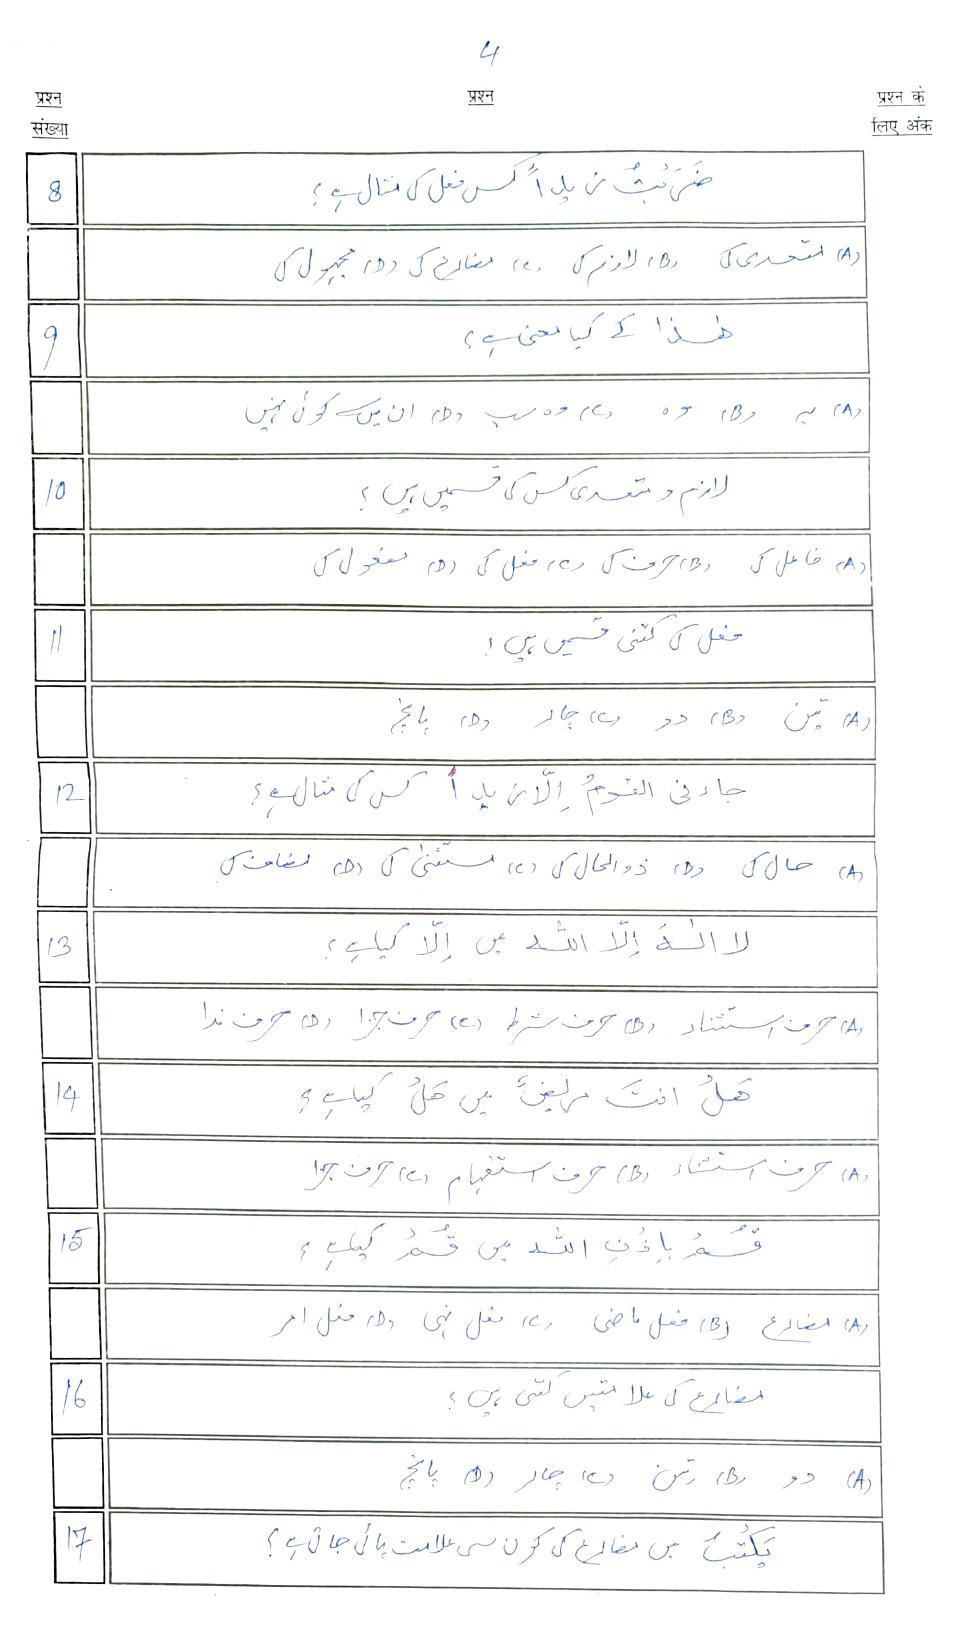 4
प्रश्न संख्या प्रश्न प्रश्न के लिए अंक
8 ضَرَبْتُ زیداً کس فعل کی مثال ہے؟
(A) متعدی کی (B) لازم کی (C) مضارع کی (D) مجہول کی
9 ھٰذا کے کیا معنی ہے؟
(A) یہ (B) وہ (C) وہ سب (D) ان میں سے کوئی نہیں
10 لازم و متعدی کس کی قسمیں ہیں؟
(A) فاعل کی (B) حرف کی (C) فعل کی (D) مفعول کی
11 فعل کی کتنی قسمیں ہیں؟
(A) تین (B) دو (C) چار (D) پانچ
12 جاءنی القومُ اِلّا زیداً کس کی مثال ہے؟
(A) حال کی (B) ذوالحال کی (C) مستثنیٰ کی (D) مضاف کی
13 لا الٰہَ اِلّا اللہ میں اِلّا کیا ہے؟
(A) حرف استثناء (B) حرف شرط (C) حرف جزا (D) حرف ندا
14 هَلْ انتَ مریضٌ میں هَلْ کیا ہے؟
(A) حرف استثناء (B) حرف استفہام (C) حرف جزا
15 قُمْ بِاِذْنِ اللہ میں قُمْ کیا ہے؟
(A) مضارع (B) فعل ماضی (C) فعل نہی (D) فعل امر
16 مضارع کی علامتیں کتنی ہیں؟
(A) دو (B) تین (C) چار (D) پانچ
17 یَکْتُبُ میں مضارع کی کون سی علامت پائی جاتی ہے؟